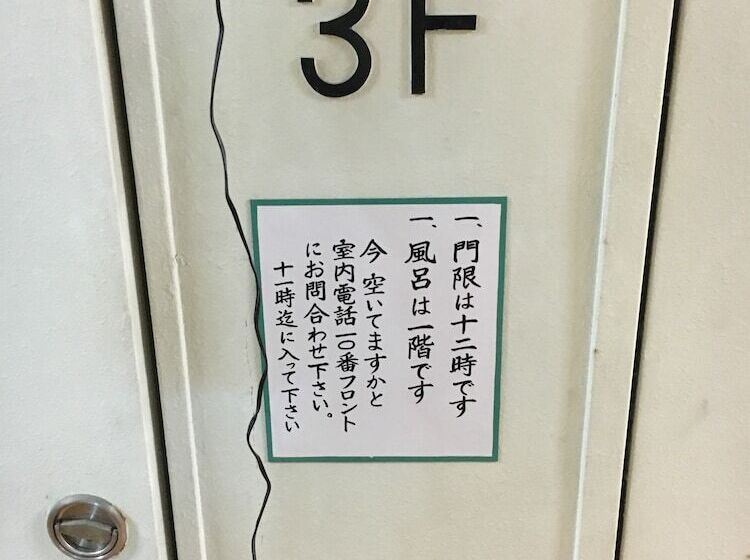 3F
一、門限は十二時です
一、風呂は一階です
今空いてますかと
室内電話一〇番フロント
にお問合わせ下さい。
十一時迄に入って下さい